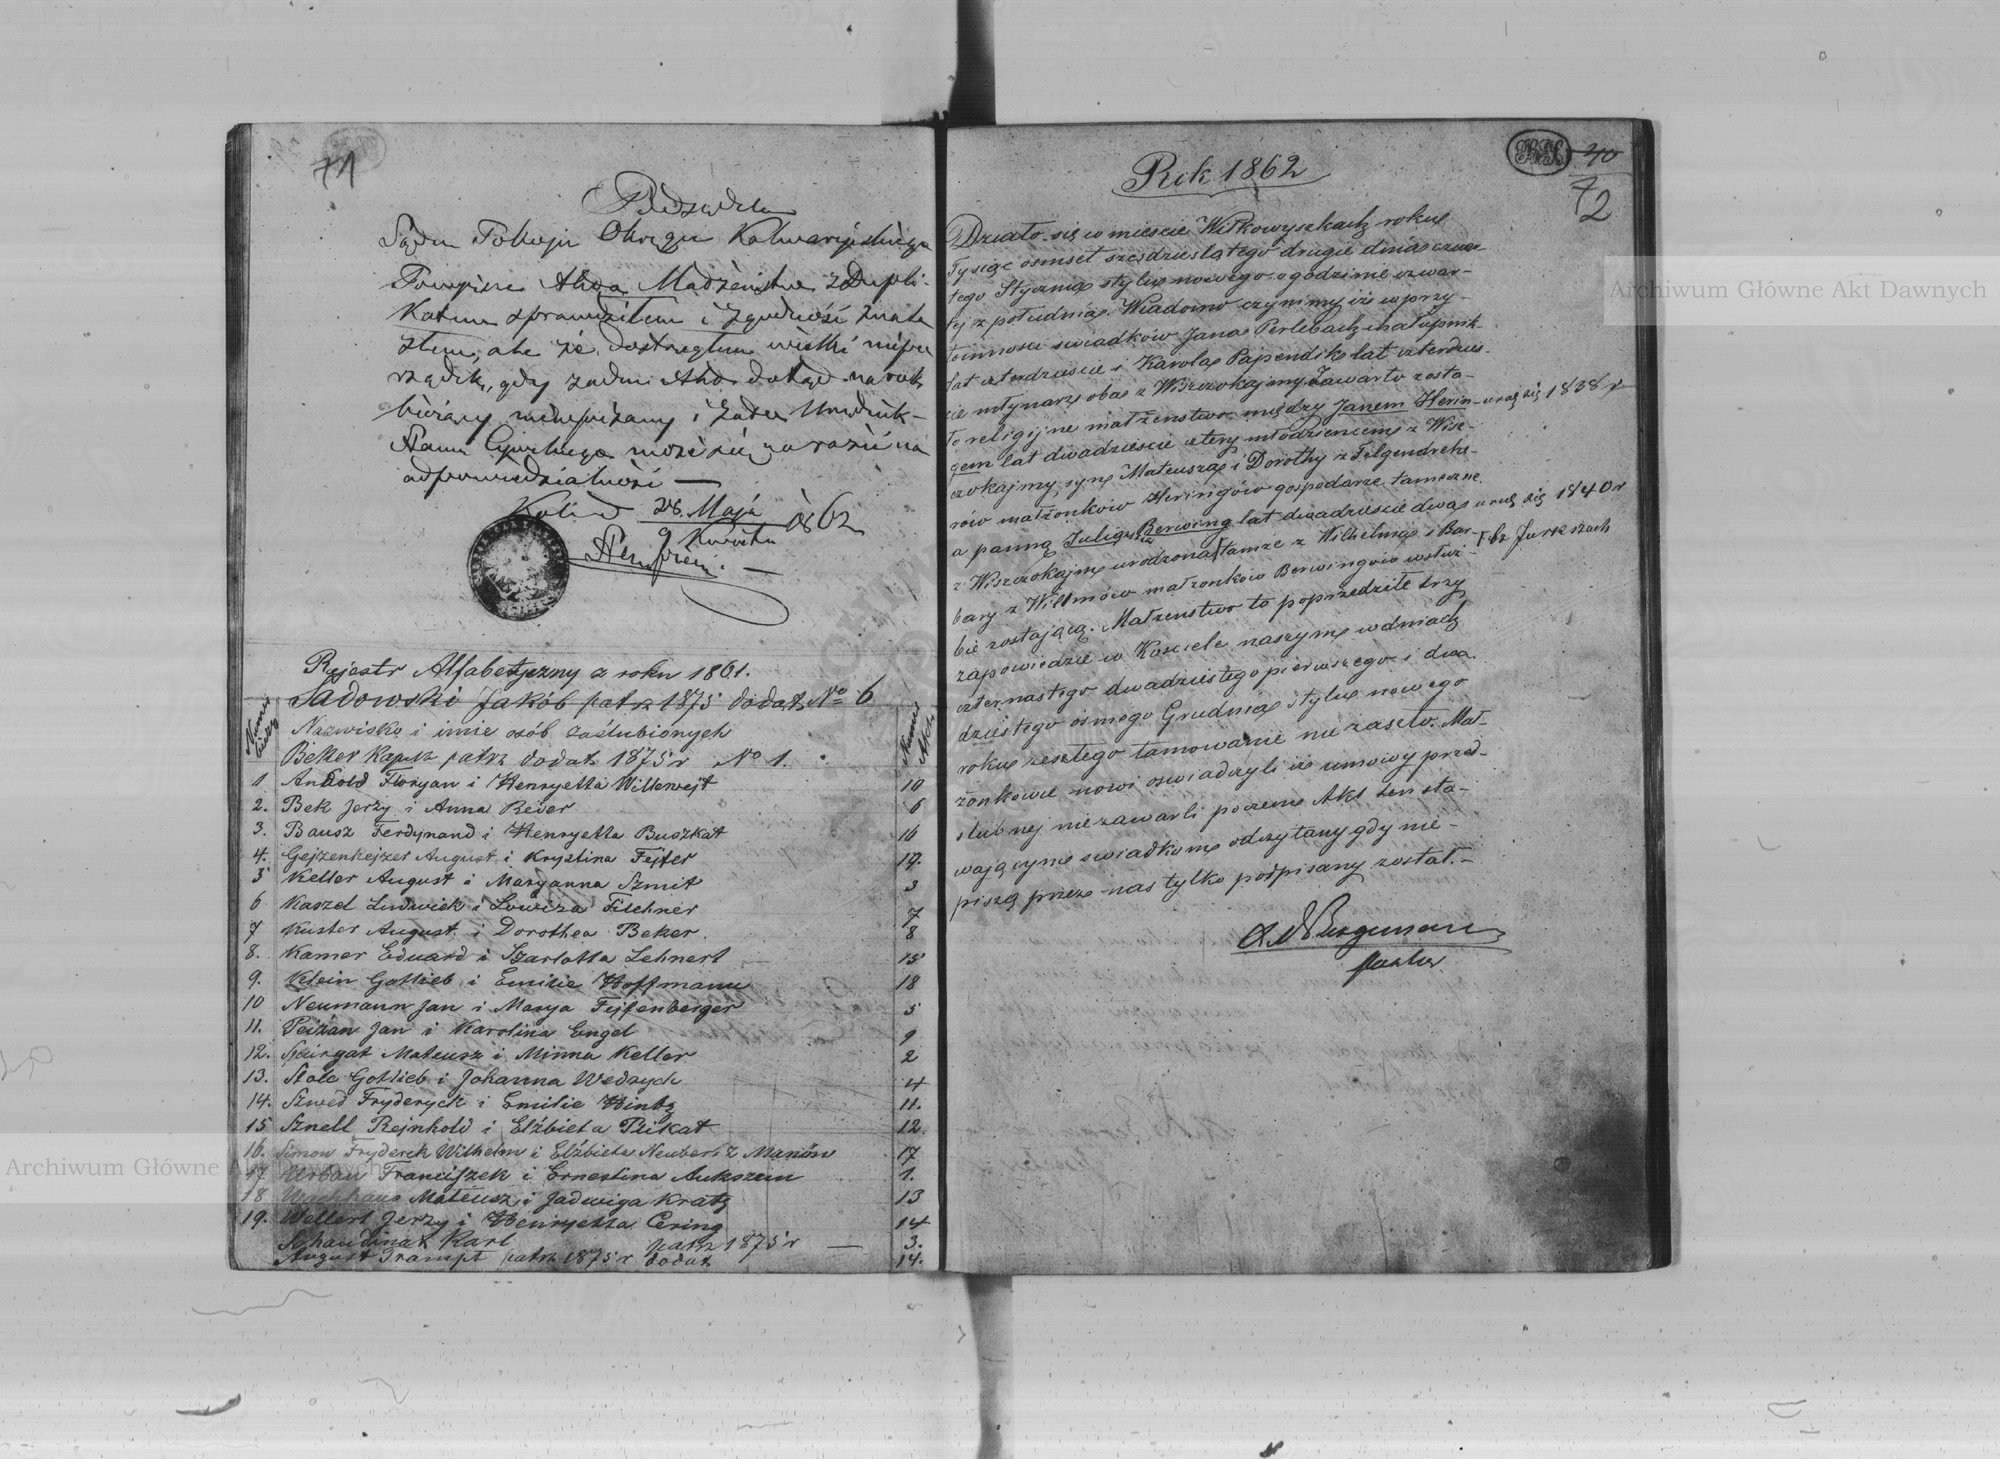 71
Podsędek
Sądu Pokoju Okręgu Kalwaryjskiego
Akta Małżeństw z Dupli-
katem sprawdziłem i zgodność znala
złem, ale że dostrzegłem wielki niepo
rządek, gdyż żaden Akt dotąd na rok
bieżący niewpisany i żaden Urzędnik
Stanu Cywilnego może się narazić na
odpowiedzialność —
28 Maja
9 Czerwca 1862
Rejestr Alfabetyczny z roku 1861.
Sadowski Jakób patrz 1875 dodat. No 6
Numer
Numer Aktu
Nazwisko i imie osób zaślubionych
Beker patrz dodat. 1875 r No 1.
1 Arnhold Floryan i Henryetta Willerwejt 10
2. Bek Jerzy i Anna Reder 6
3. Bausz Ferdynand i Henryetta Buszkat 16
4. Gejzenhejzer August i Krystina Fejfer 19.
5 Keller August i Maryanna Szmit 3
6 Kaszel Ludwick i Lowiza Filchner 7
7 Kuster August i Dorothea Beker. 8
8. Kamer Eduard i Szarlotta Lehnert 15
9. Klein Gottlieb i Emilie Hoffmann 18
10 Neumann Jan i Marya Fejfenberger 5
11. Peizan Jan i Karolina Engel 9
12. Spirgat Mateusz i Minna Keller 2
13. Stole Gotlieb i Johanna Wedrych 4
14. Szwed Fryderyck i Emilie Hintz 11.
15 Sznell Rejnhold i Elżbieta Plikat 12.
16. Simon Fryderck Wilhelm i Elżbieta Neuber z Manów 17
17 Urban Franciszek i Ernestina Aukszun 1.
18 Wachhaus Mateusz i Jadwiga Kratz 13
19. Wellert Jerzy i Henryetta Cering 14
Schaudinat Karl patrz 1875 r — 3.
August Trampt patrz 1875 r dodat 14.
40
72
Rok 1862
Działo się w mieście Wiłkowyszkach roku
Tysiąc ośmset sześdziesiątego drugie dnia czwar-
tego Stycznia stylu nowego o godzinie czwar-
tej z południa. Wiadomo czynimy iż w przy-
tomności świadków Jana Perlebach chałupnik
lat czterdzieście i Karola Papendik lat czterdzieś-
cie młynarz oba z Wiszczokajmy, Zawarto zosta-
ło religijne małżeństwo między Janem Herin- urodz się 1838 r
gem lat dwadzieście cztery młodzieńcem z Wisz-
czokajmy, syn Mateusza i Dorothy z Felgendrehe-
rów małżonków Heringów gospodarze tameczne.
a panną Julią Berwing lat dwadzieście dwa urodz się 1840 r
z Wiszczokajm urodzona tamże z Wilhelma i Bar- Jurkszach
bary z Willmów małżonków Berwingów w służ-
bie zostającą. Małżenstwo to poprzedziłe trzy
zapowiedzie w Kosciele naszym w dniach
czternastego dwadziestego pierwszego i dwa
dziestego ósmego Grudnia stylu nowego
roku zeszłego tamowanie nie zaszło. Mał-
żonkowie nowi oświadczyli iż umowy przed-
ślubnej niezawarli poczem Akt ten sta-
wającym swiadkom odczytany, gdy nie-
piszą przez nas tylko podpisany został.—
Bergmann
pastor
Archiwum Główne Akt Dawnych
Archiwum Główne Akt Dawnych